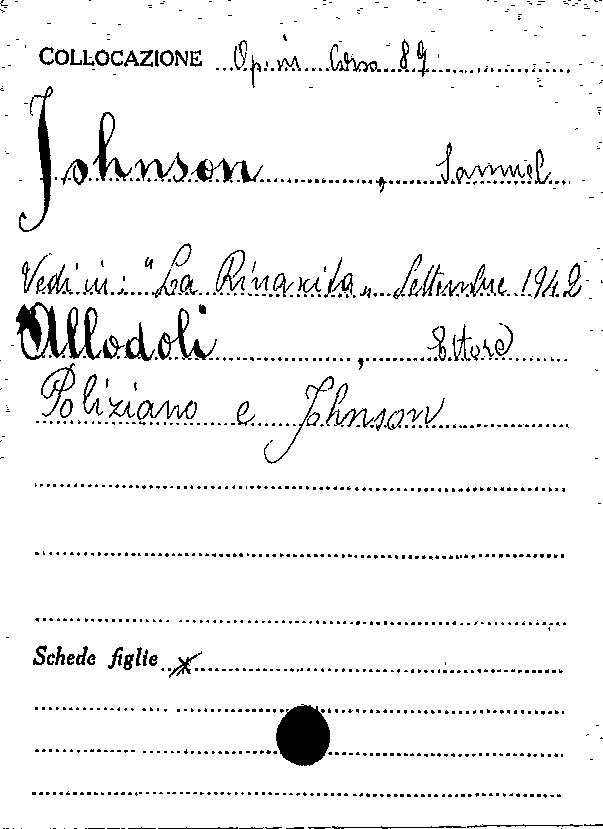 COLLOCAZIONE Op. in Corso 89
Johnson, Samuel
Vedi in: "La Rinascita" Settembre 1942
Allodoli, Ettore
Poliziano e Johnson
Schede figlie x